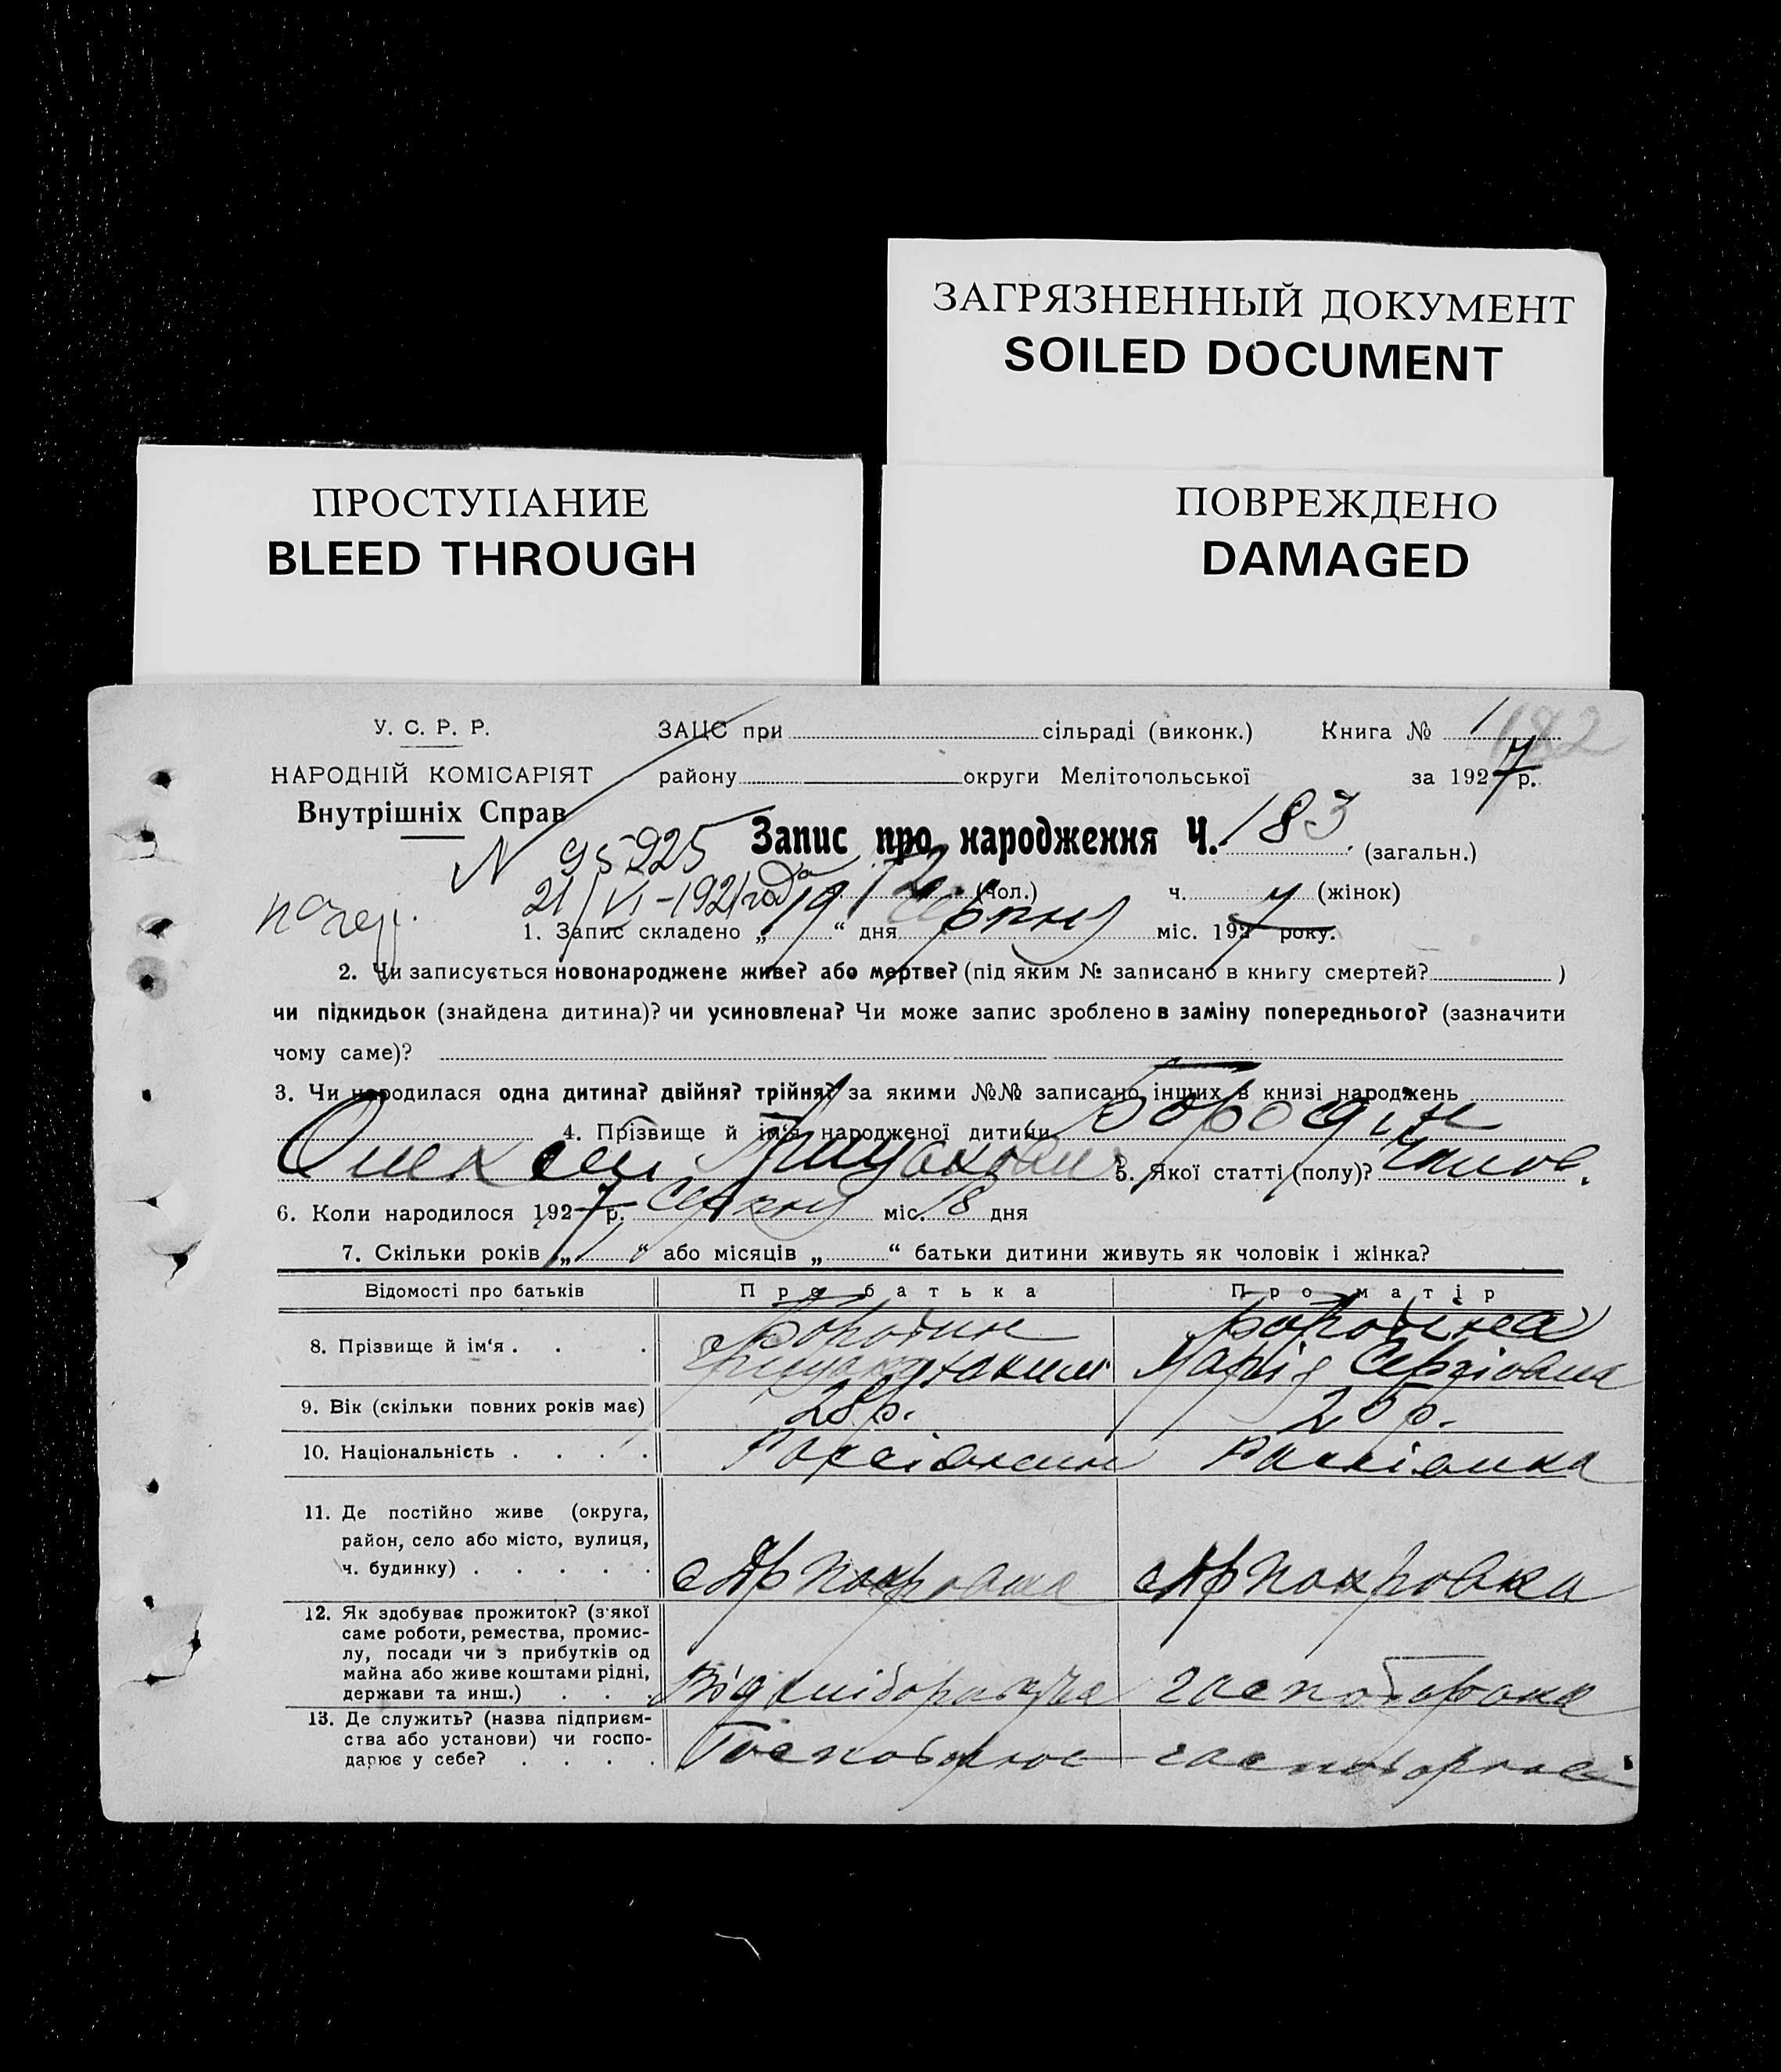 ЗАГРЯЗНЕННЫЙ ДОКУМЕНТ
SOILED DOCUMENT
ПРОСТУПАНИЕ
BLEED THROUGH
ПОВРЕЖДЕНО
DAMAGED
У. С. Р. Р.
НАРОДНІЙ КОМІСАРІЯТ
Внутрішніх Справ
ЗАЦС при сільраді (виконк.) Книга № 1 182
району округи Мелітопольської за 1927 р.
N 95925 Запис про народження Ч. 183 (загальн.)
21/VI-1921 года (чол.) ч. (жінок)
1. Запис складено „19“ дня Серпня міс. 1927 року.
2. Чи записується новонароджене живе? або мертве? (під яким № записано в книгу смертей? )
чи підкидьок (знайдена дитина)? чи усиновлена? Чи може запис зроблено в заміну попереднього? (зазначити
чому саме)?
3. Чи народилася одна дитина? двійня? трійня? за якими №№ записано інших в книзі народжень
4. Прізвище й ім'я народженої дитини Бородін
Олексій 5. Якої статті (полу)? Чолов.
6. Коли народилося 1927 р. Серпня міс. 18 дня
7. Скільки років „1“ або місяців „ “ батьки дитини живуть як чоловік і жінка?
Відомості про батьків Про батька Про матір
8. Прізвище й ім'я . . . Бородин Бородіна
Марія Сергіовна
9. Вік (скільки повних років має) 28 р. 25 р.
10. Національність . . . . Россіянин Россіянка
11. Де постійно живе (округа,
район, село або місто, вулиця,
ч. будинку) . . . . .
Покровка Покровка
12. Як здобуває прожиток? (з'якої
саме роботи, ремества, промис-
лу, посади чи з прибутків од
майна або живе коштами рідні,
держави та инш.) . . .
13. Де служить? (назва підприєм-
ства або установи) чи госпо-
дарює у себе? . . . .